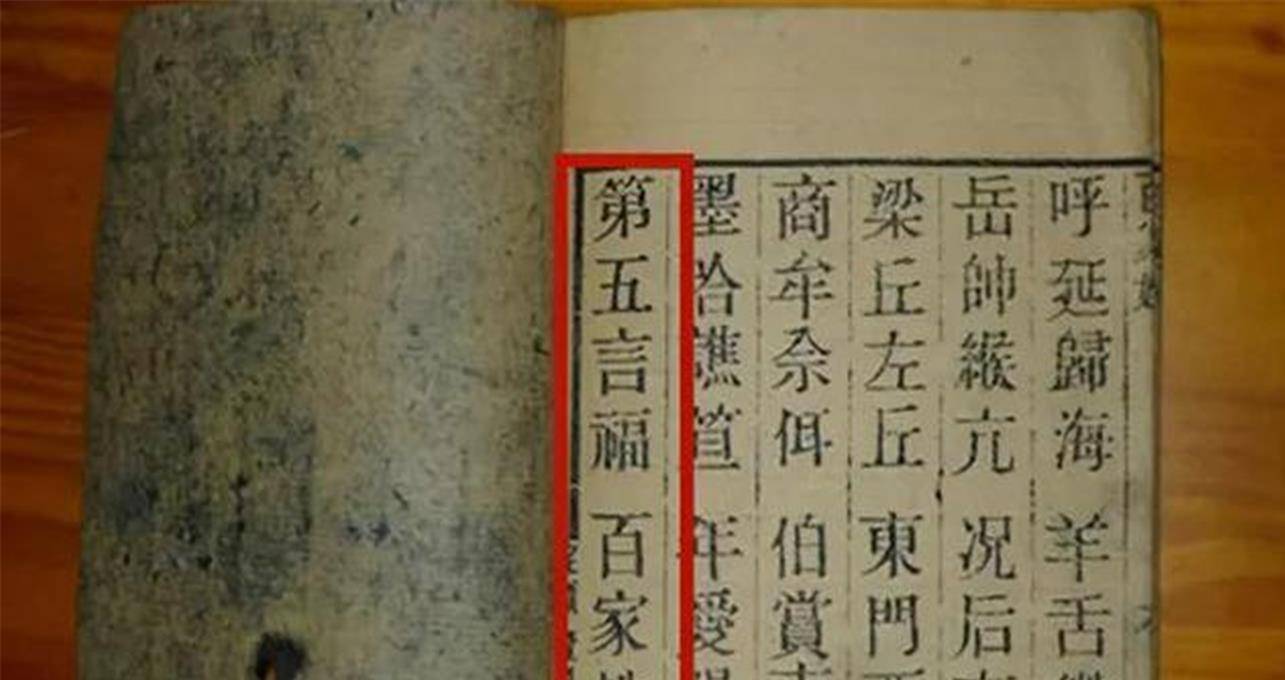 呼延歸海羊舌
岳帥緱亢况后
梁丘左丘東門
商牟佘佴伯賞
墨哈譙笪年愛
第五言福百家